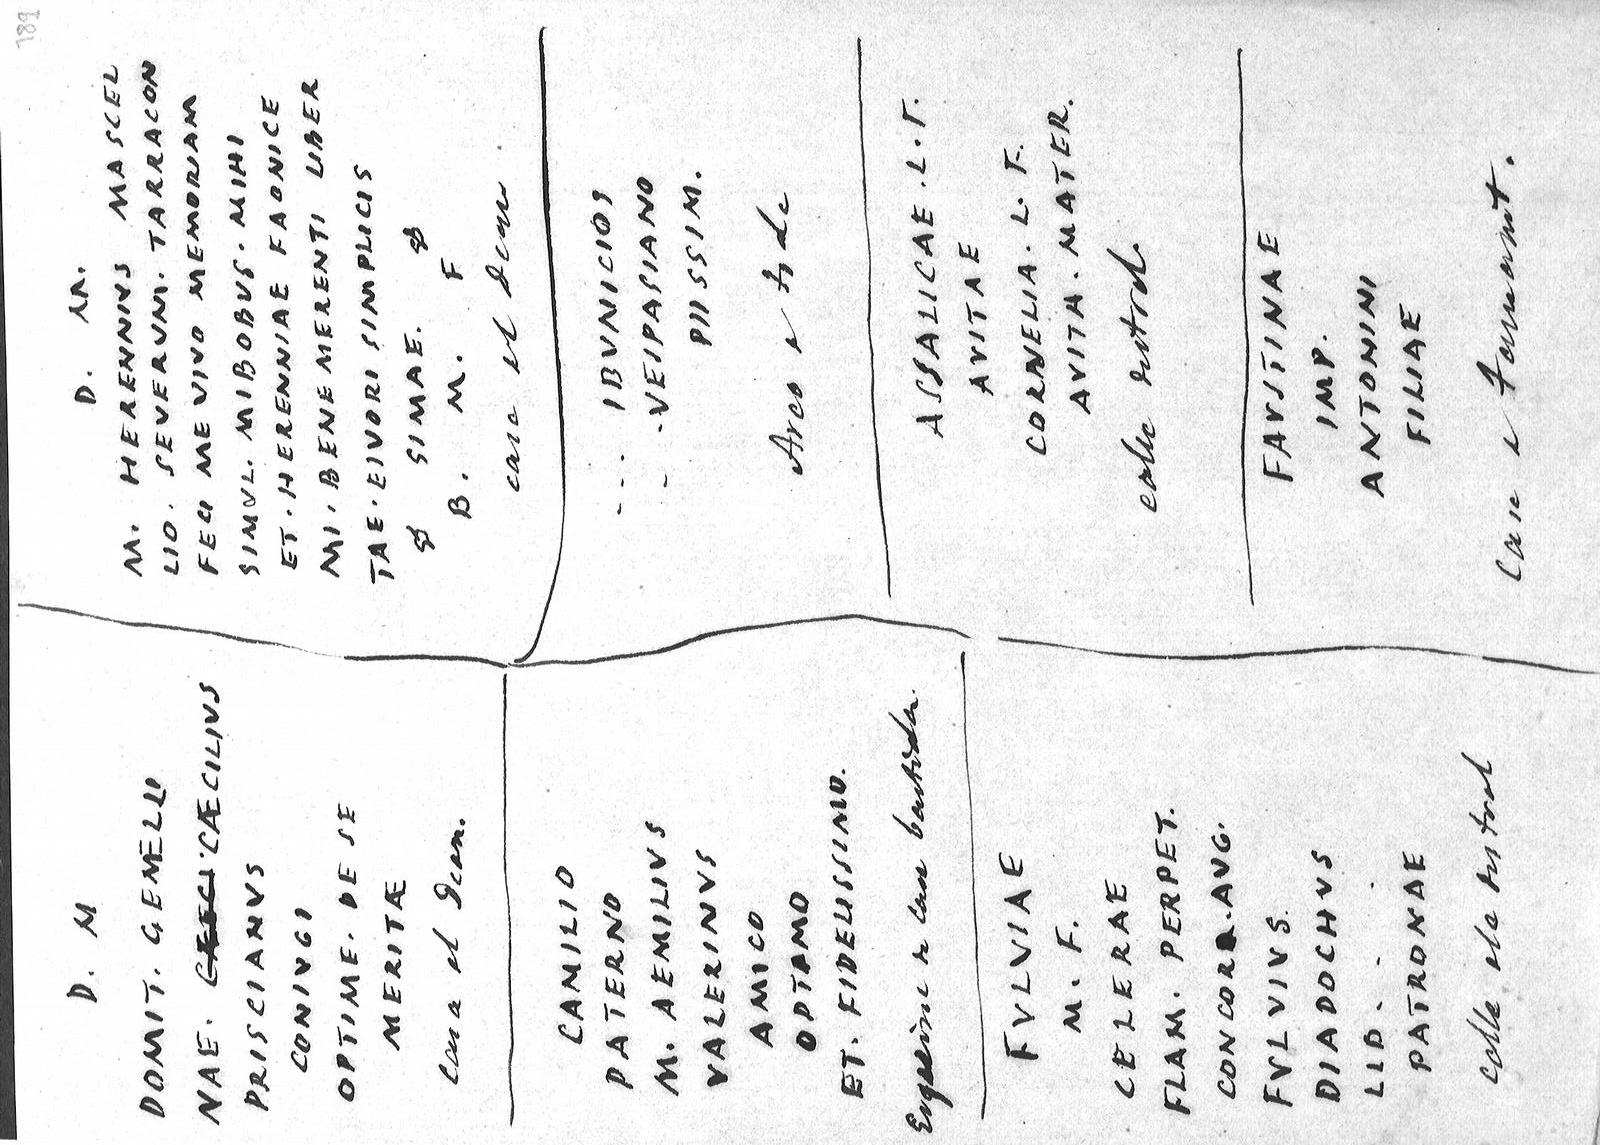 189
D. M
DOMIT. GEMELLI
NAE. CAECILIVS
PRISCIANVS
CONIVGI
OPTIME. DE SE
MERITÆ
Casa el Dean.
CAMILIO
PATERNO
M. AEMILIVS
VALERINVS
AMICO
OPTAMO
ET. FIDELISSIMO.
FVLVIAE
M. F.
CELERAE
FLAM. PERPET.
CONCOR. AVG.
FVLVIVS
DIADOCHVS
LLD. . .
PATRONAE
calle
D. M.
M. HERENNIVS MASCEL
LIO. SEVERVM. TARRACON
FECI ME VIVO MEMORIAM
SIMVL. MIBOBVS. MIHI
ET. HERENNIAE FAONICE
MI. BENE MERENTI LIBER
TAE. EIVORI SIMPLICIS
SIMAE.
B. M. F
casa el Dean.
... IBVNICIOS
... VEIPASIANO
PIISSIM.
Arco
ASSALICAE. L. F.
AVITAE
CORNELIA. L. F.
AVITA. MATER.
calle
FAVSTINAE
IMP.
ANTONINI
FILIAE
Casa